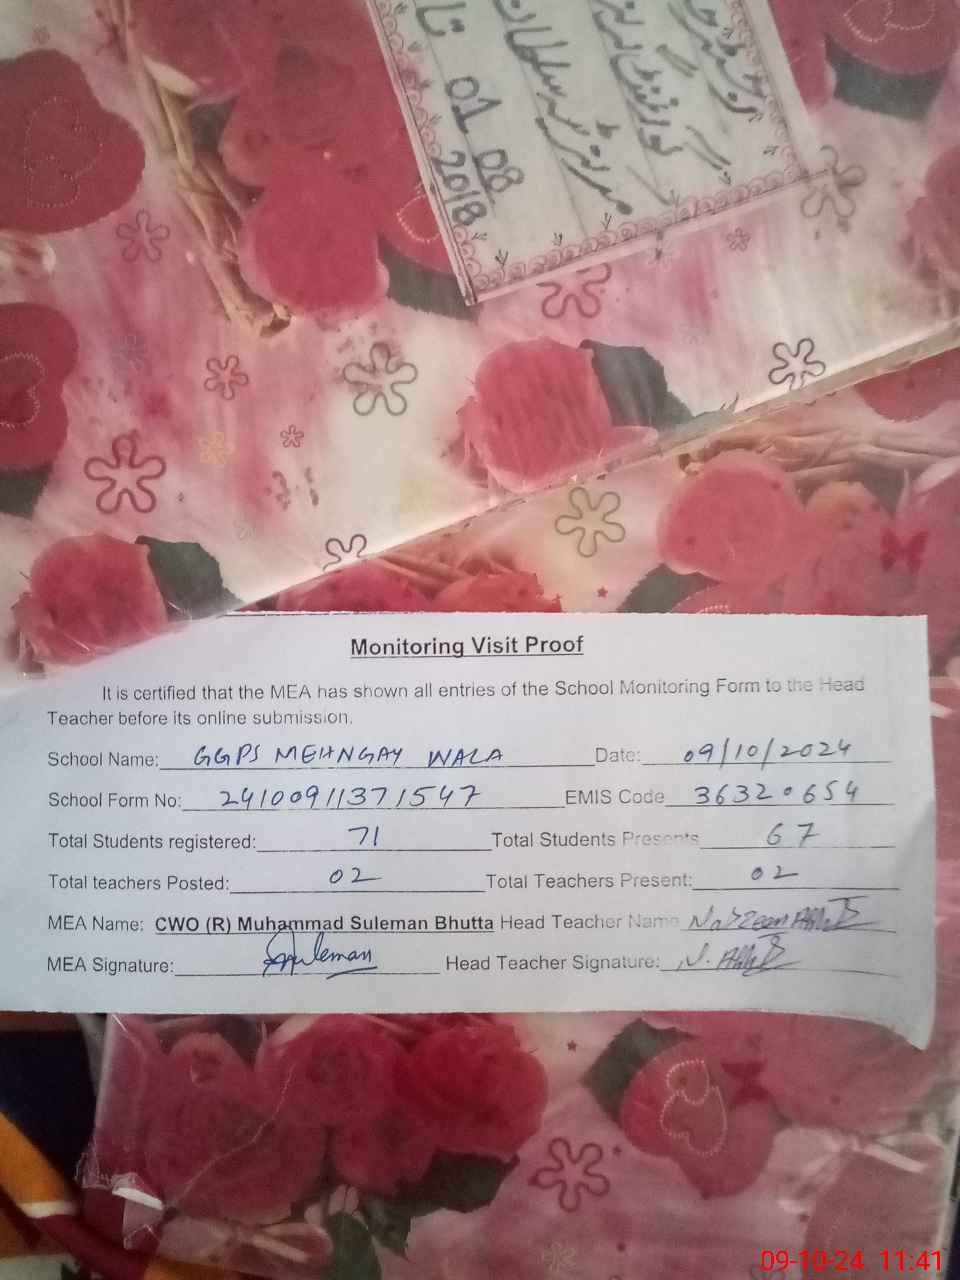 01 08
2018
Monitoring Visit Proof
It is certified that the MEA has shown all entries of the School Monitoring Form to the Head
Teacher before its online submission.
School Name: GGPS MEHNGAY WALA Date: 09/10/2024
School Form No: 2410091137 1547 EMIS Code 36320654
Total Students registered: 71 Total Students Presents 67
Total teachers Posted: 02 Total Teachers Present: 02
MEA Name: CWO (R) Muhammad Suleman Bhutta Head Teacher Name
MEA Signature: Suleman Head Teacher Signature: N.
09-10-24 11:41